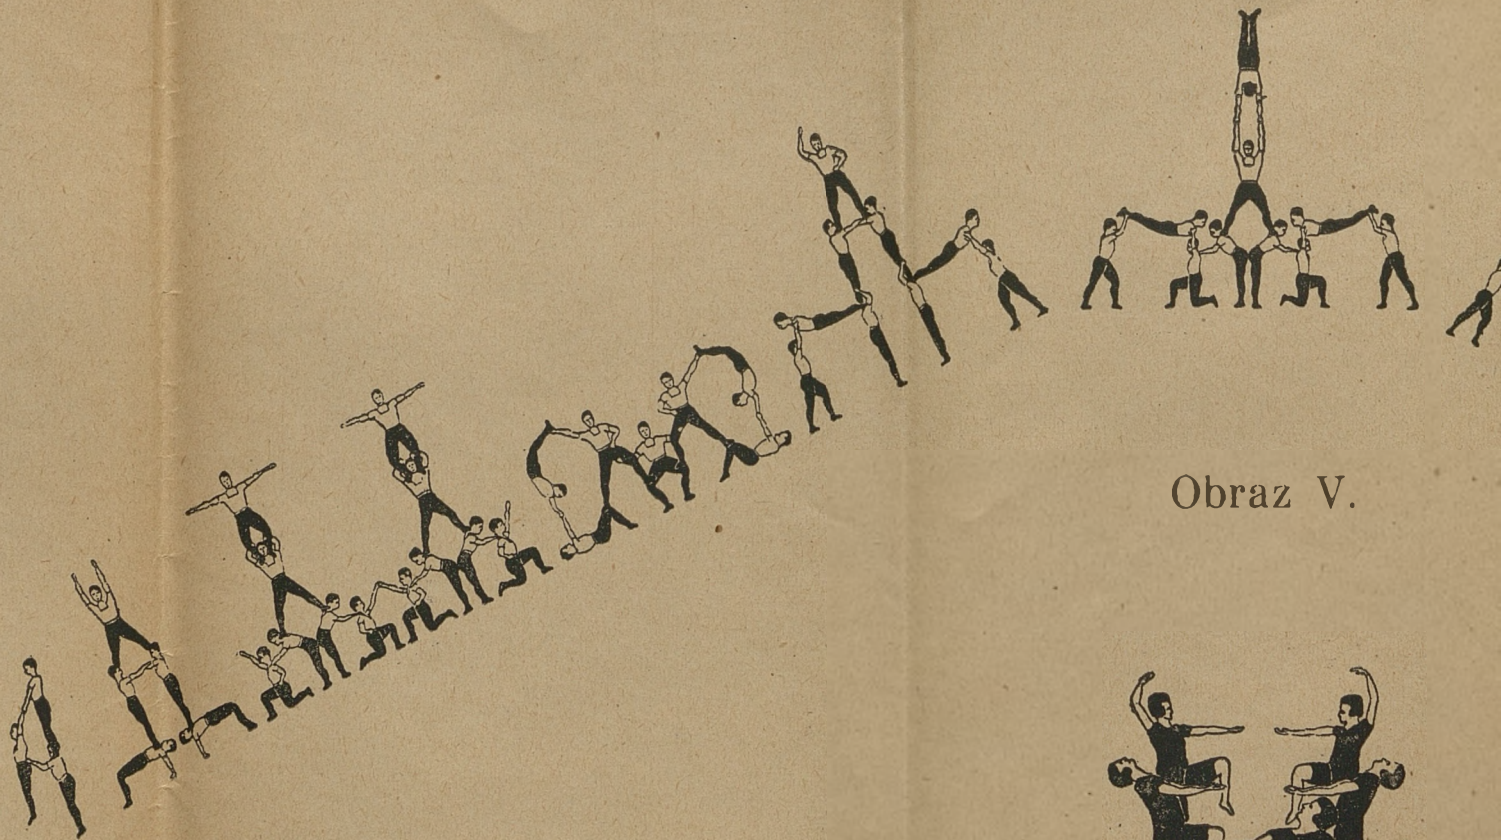 Obraz V.